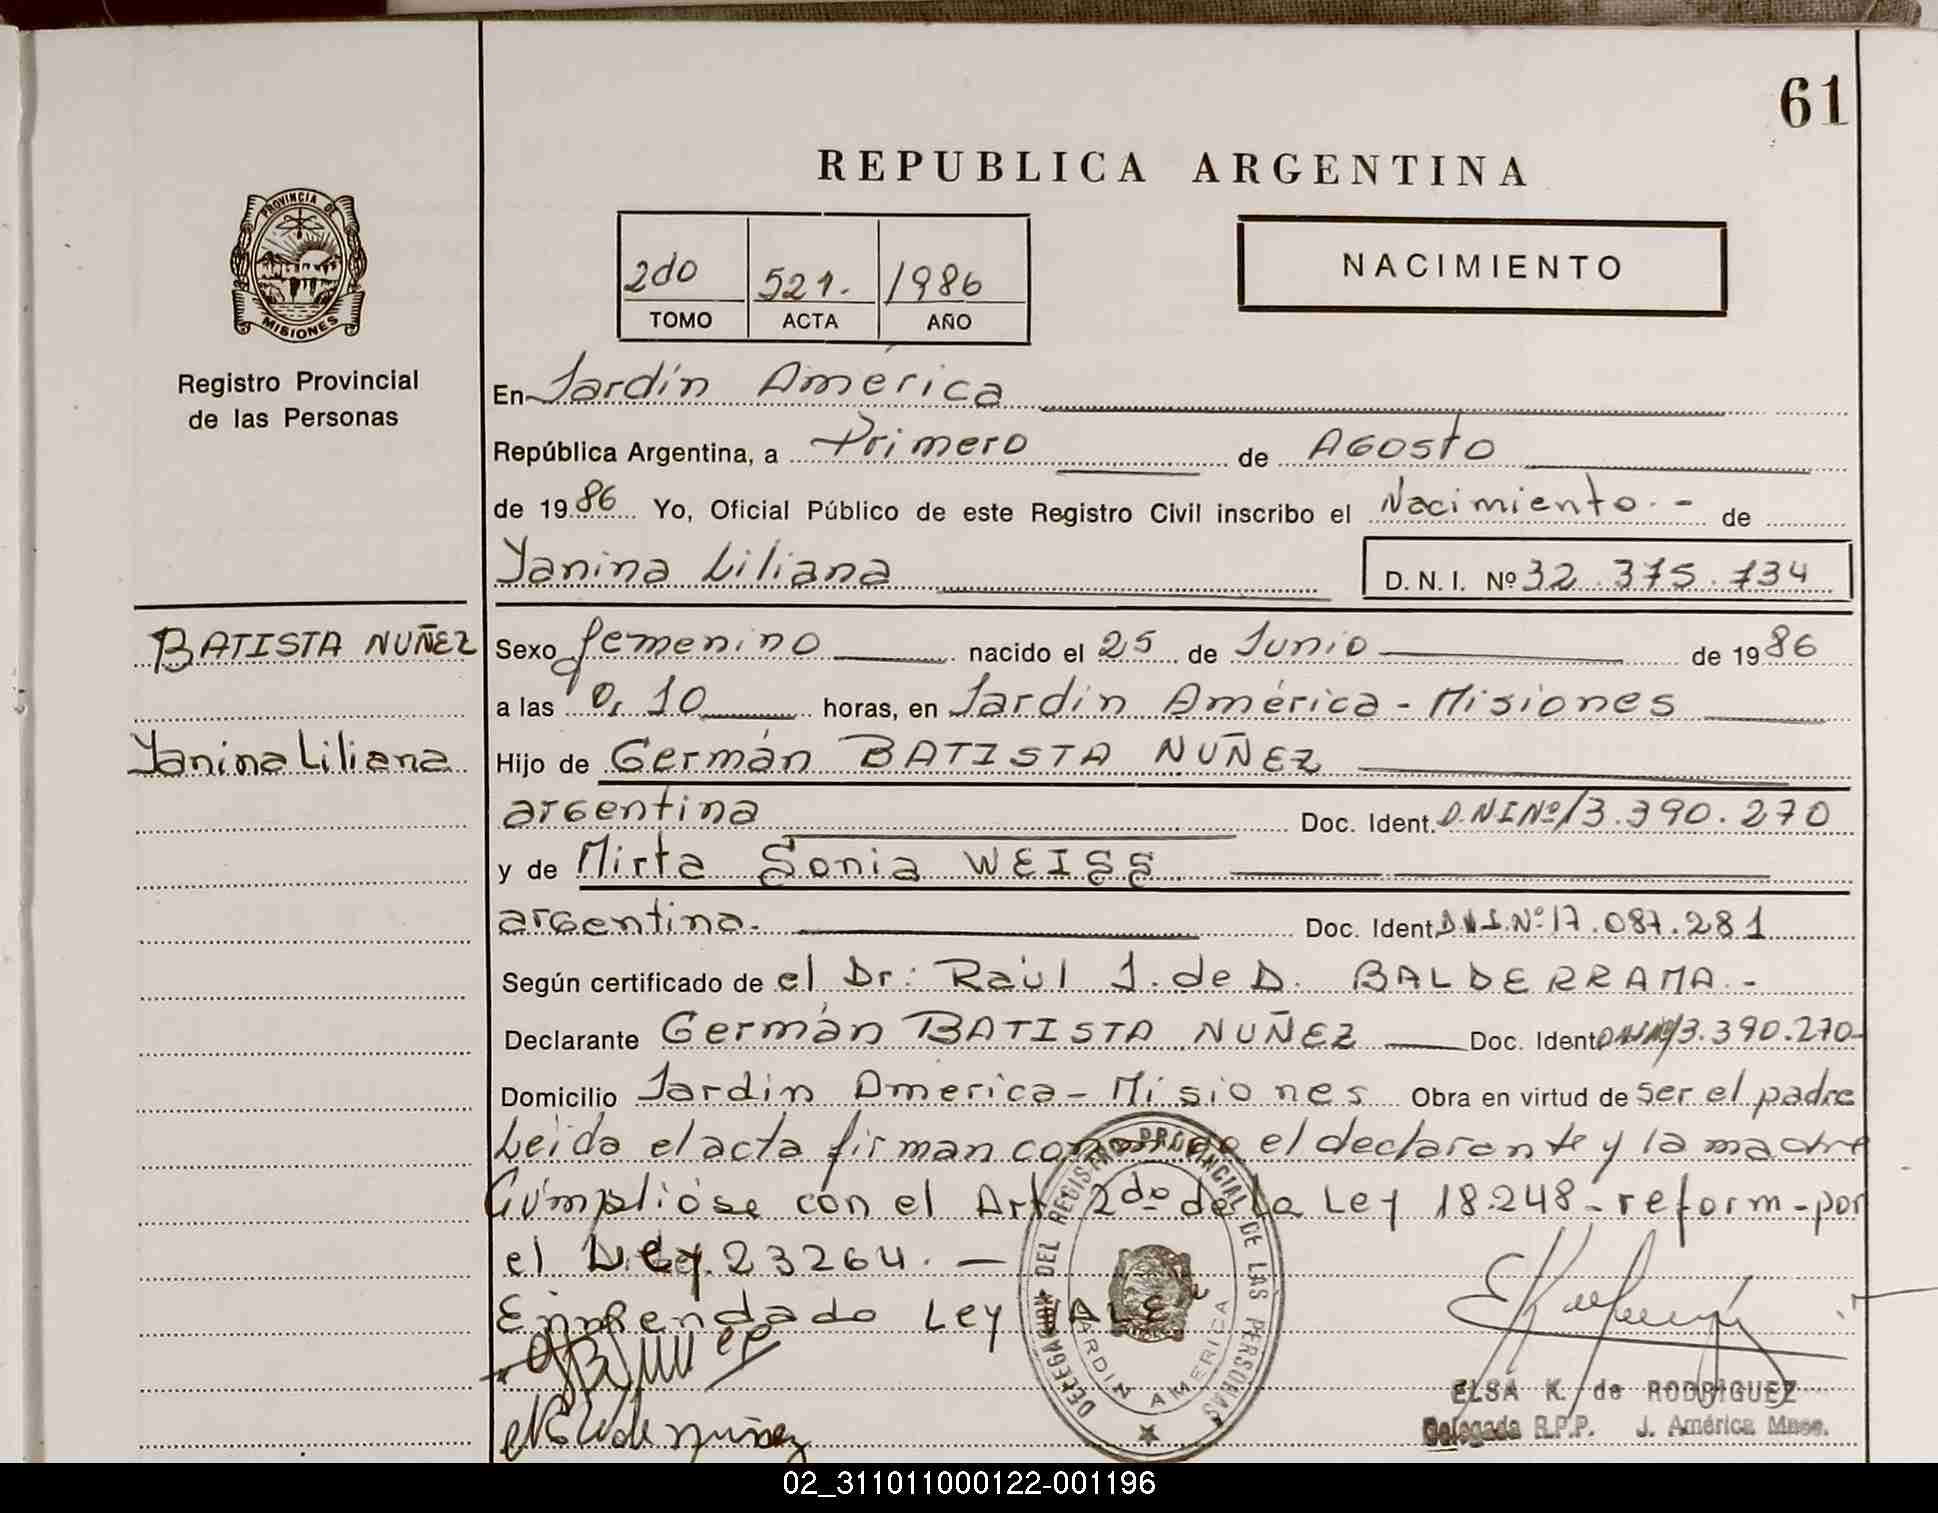 61
REPUBLICA ARGENTINA
PROVINCIA DE
MISIONES
Registro Provincial
de las Personas
2do 521. 1986
TOMO ACTA AÑO
NACIMIENTO
En Jardín América
República Argentina, a Primero de Agosto
de 1986 Yo, Oficial Público de este Registro Civil inscribo el Nacimiento.- de
Yanina Liliana D.N.I. Nº 32.375.734
BATISTA NUÑEZ
Yanina Liliana
Sexo femenino nacido el 25 de Junio de 1986
a las 0,10 horas, en Jardín América - Misiones
Hijo de Germán BATISTA NUÑEZ
argentina Doc. Ident. D.N.I Nº 13.390.270
y de Mirta Sonia WEISS
argentina. Doc. Ident D.N.I. Nº 17.087.281
Según certificado de el Dr: Raúl J. de D. BALDERRAMA.-
Declarante Germán BATISTA NUÑEZ Doc. Ident. DNI Nº 13.390.270-
Domicilio Jardin America - Misiones Obra en virtud de ser el padre
Leida el acta firman conmigo el declarante y la madre
Cúmplióse con el Art. 2do de la Ley 18.248 - reform - por
el Ley 23264. -
Enmendado Ley VALE
DELEGACION DEL REGISTRO PROVINCIAL DE LAS PERSONAS
JARDIN AMERICA
de Nuñez
ELSA K. de RODRIGUEZ
Delegada R.P.P. J. América Mnes.
02_311011000122-001196